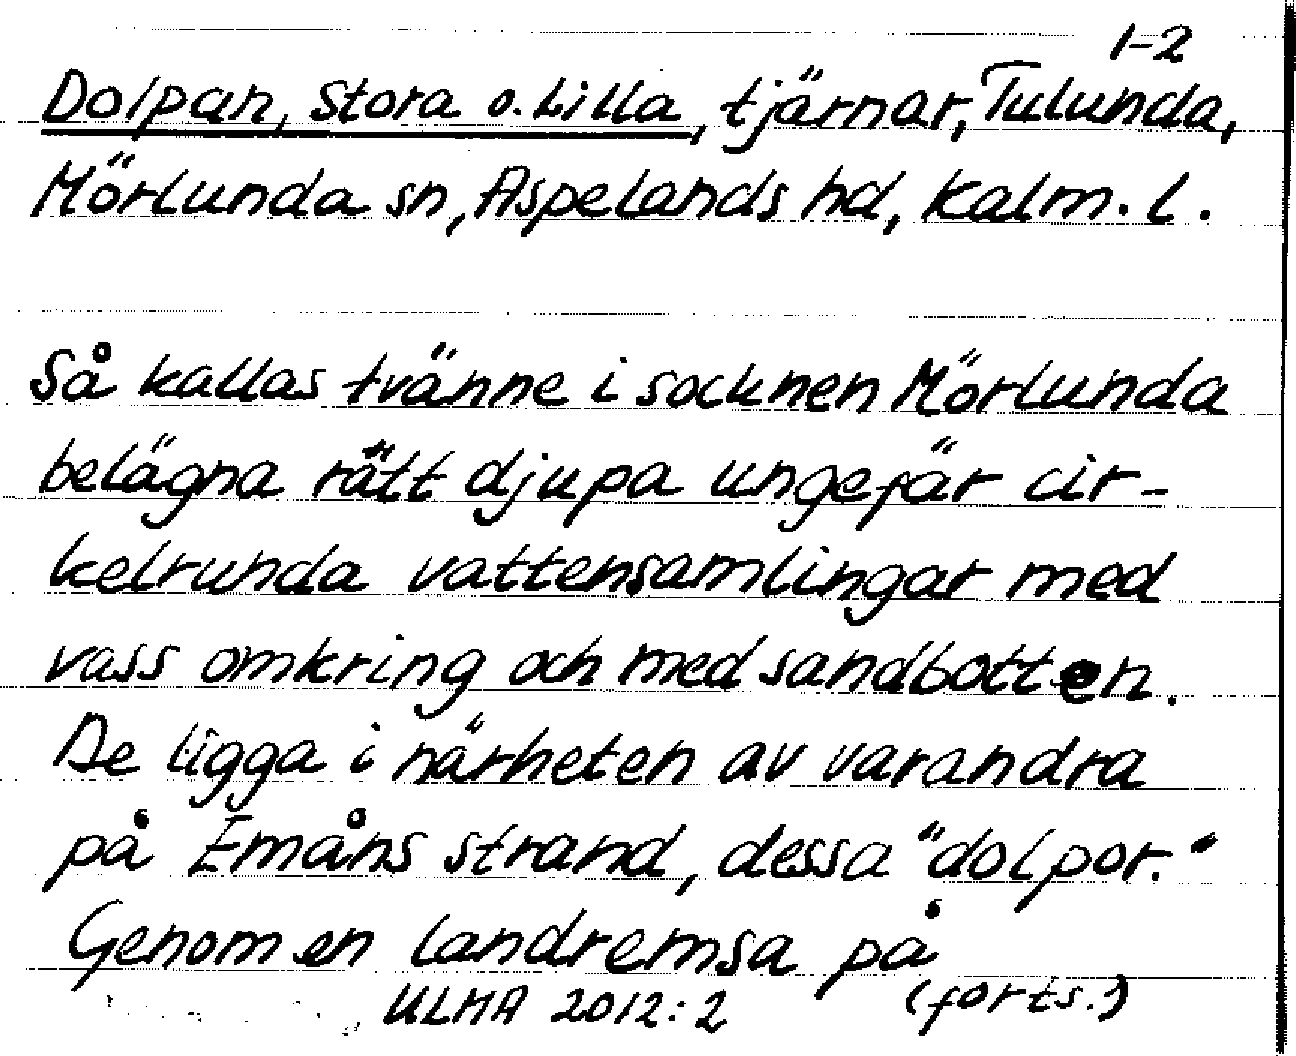 1-2
Dolpan, Stora o. Lilla, tjärnar, Tulunda,
Mörlunda sn, Aspelands hd, Kalm. l.
Så kallas tvänne i socknen Mörlunda
belägna rätt djupa ungefär cir-
kelrunda vattensamlingar med
vass omkring och med sandbotten.
De ligga i närheten av varandra
på Emåns strand, dessa "dolpor."
Genom en landremsa på
ULMA 2012:2 (forts.)